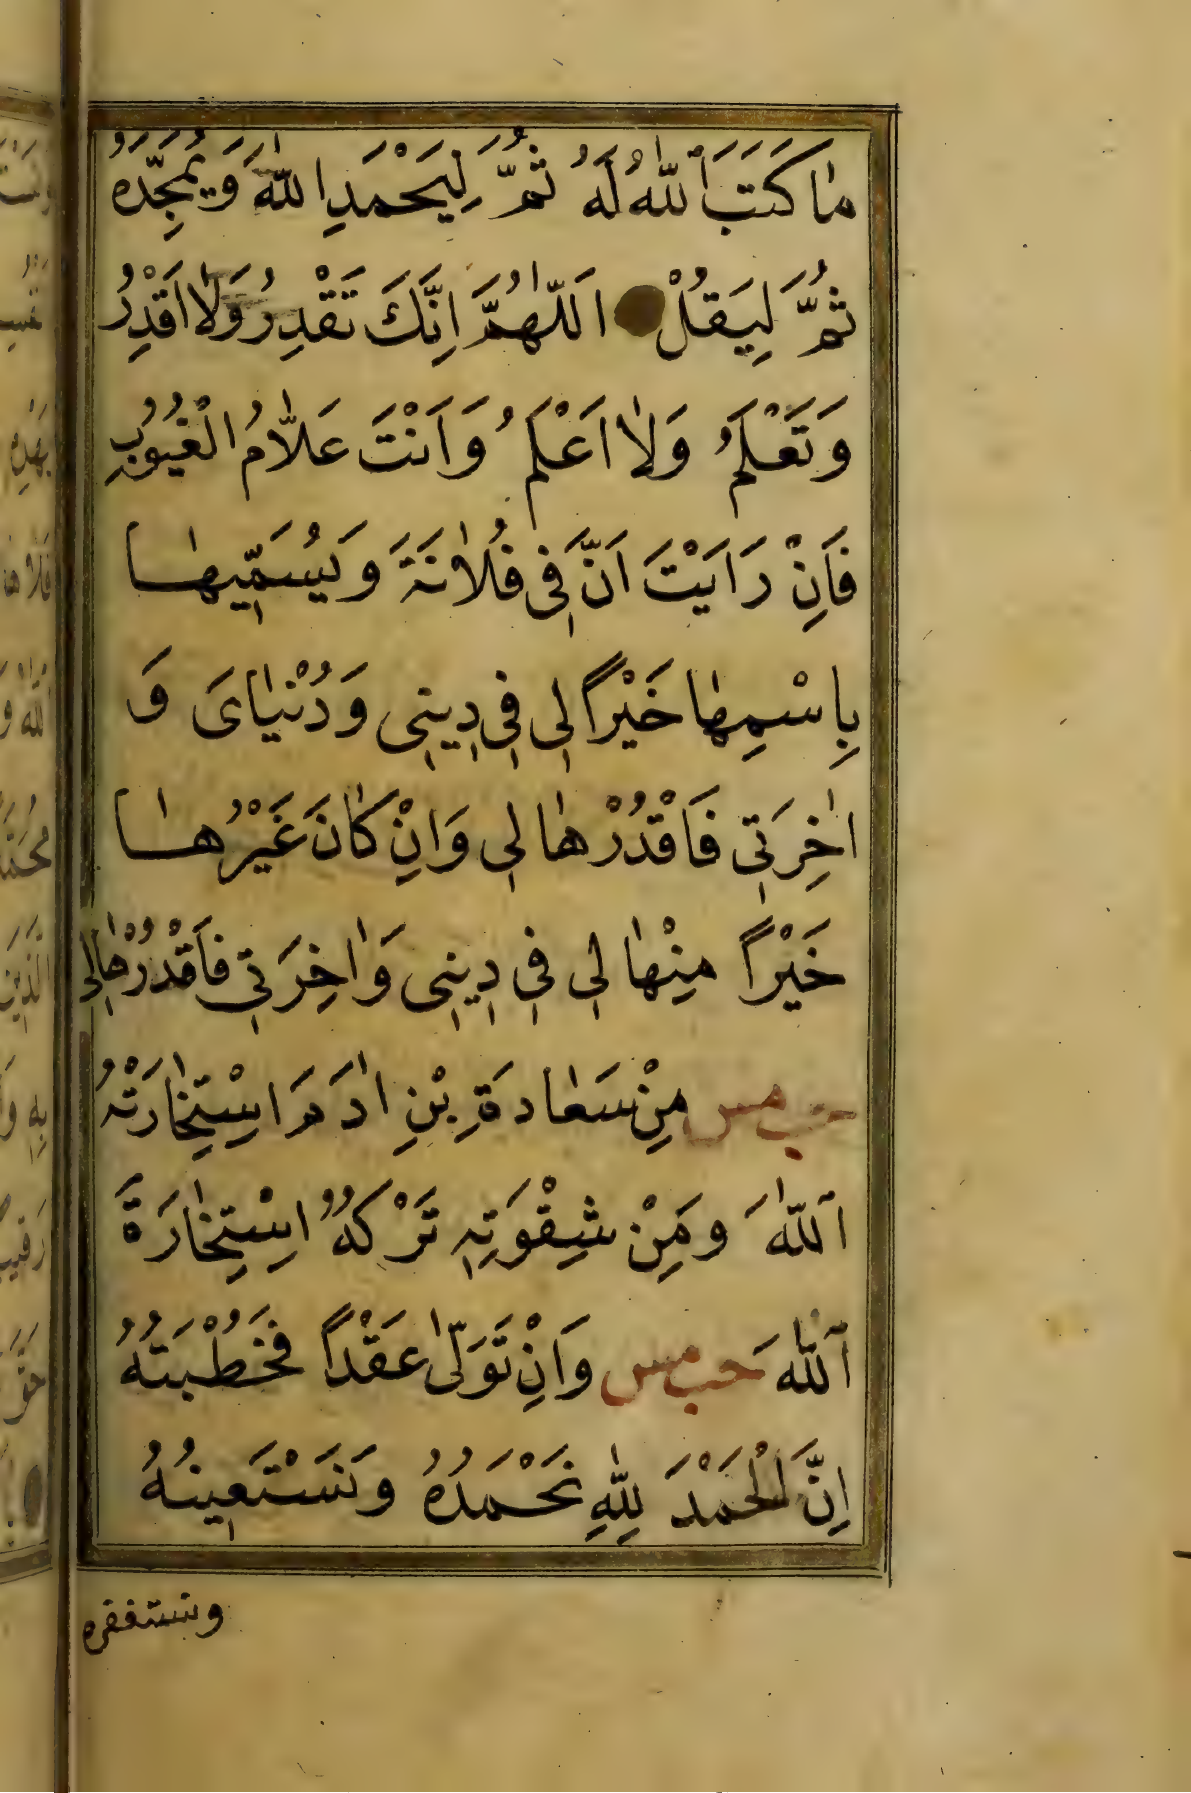 مٰا كَتَبَ اَللّٰهُ لَهُ ثُمَّ لِيَحْمَدِ اللّٰهَ وَيُمَجِّدُهُ
ثُمَّ لِيَقُلْ اَللّٰهُمَّ اِنَّكَ تَقْدِرُ وَلٰا اَقْدِرُ
وَتَعْلَمُ وَلٰا اَعْلَمُ وَاَنْتَ عَلّٰامُ الْغُيُوبِ
فَاِنْ رَاَيْتَ اَنَّ فِي فُلٰانَةَ وَيُسَمِّيهٰا
بِاسْمِهٰا خَيْراً لِي فِي دِينِي وَدُنْيٰايَ وَ
اٰخِرَتِي فَاقْدُرْهٰا لِي وَاِنْ كٰانَ غَيْرُهٰا
خَيْراً مِنْهٰا لِي فِي دِينِي وَاٰخِرَتِي فَاقْدُرْهٰا لِي
حب مس مِنْ سَعٰادَةِ بْنِ اٰدَمَ اسْتِخٰارَتُهُ
اَللّٰهَ وَمِنْ شِقْوَتِهِ تَرْكُهُ اسْتِخٰارَةَ
اَللّٰهَ حب مس وَاِنْ تَوَلّٰى عَقْداً فَخُطْبَتُهُ
اِنَّ الْحَمْدَ لِلّٰهِ نَحْمَدُهُ وَنَسْتَعِينُهُ
ونستغفره